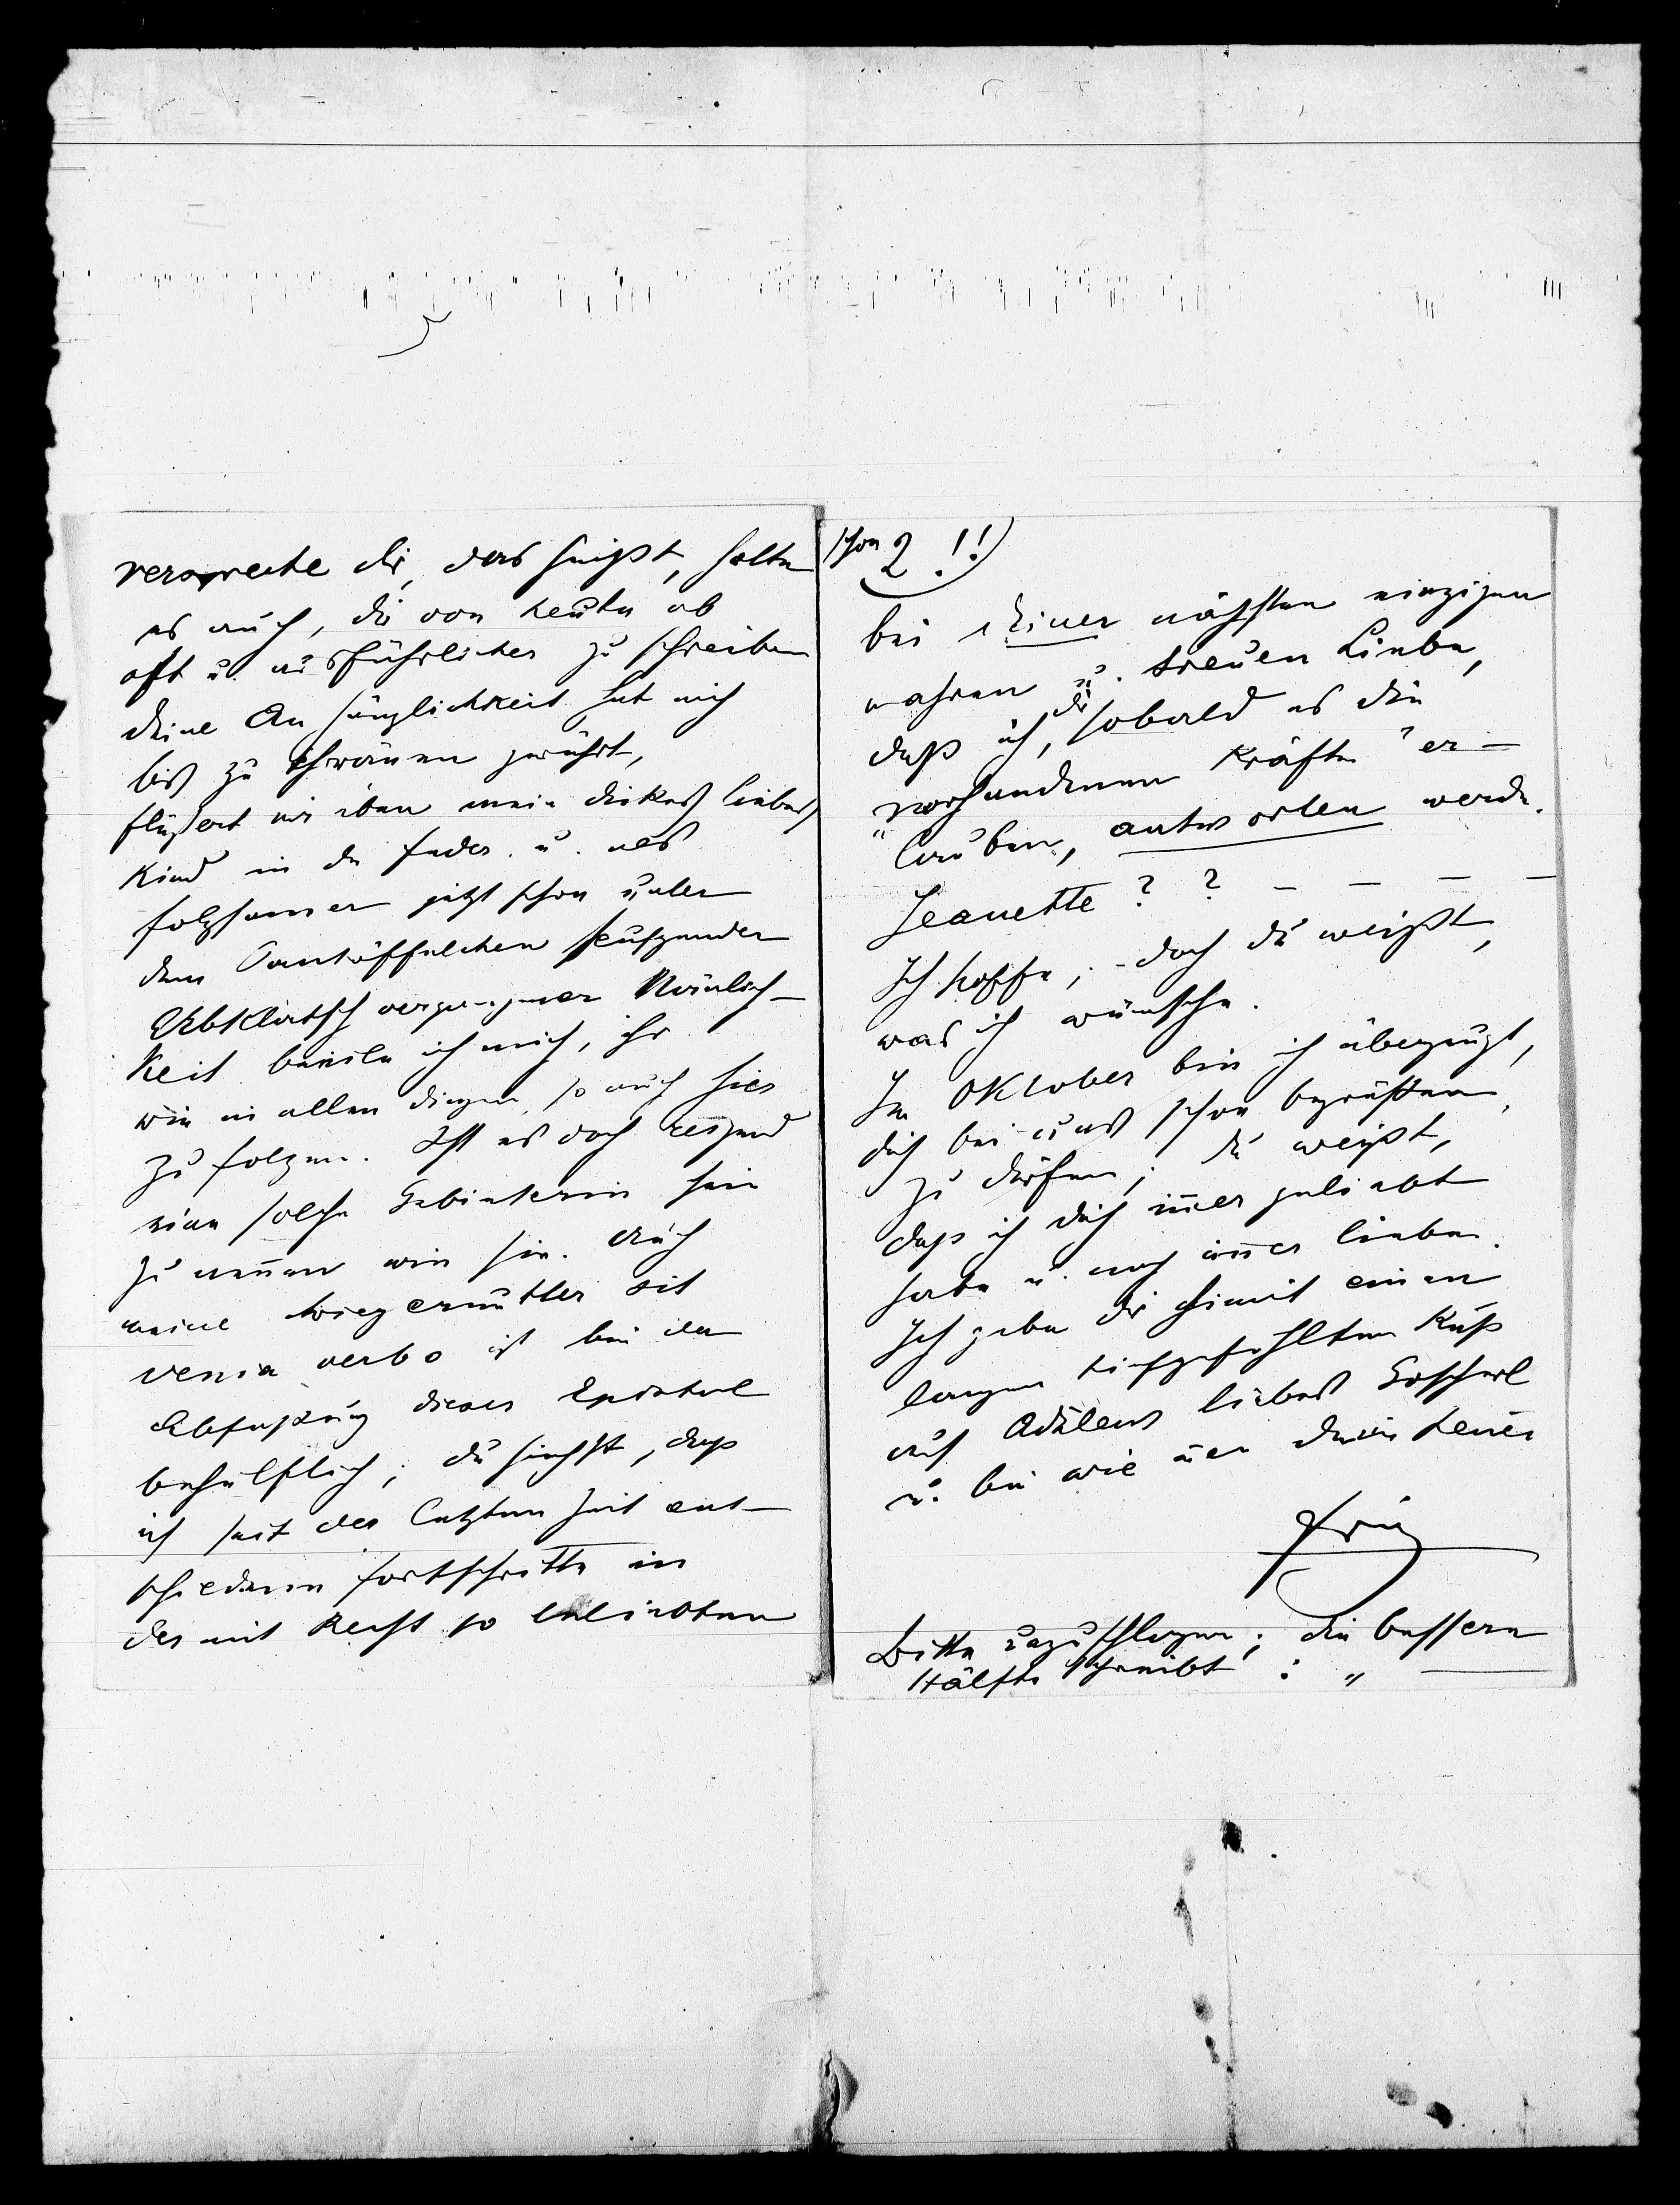 verspreche dir, das heißt, halte
es auch, dir von heute ab
oft u. ausführlicher zu schreiben
Deine Anhänglichkeit hat mich
bis zu Thränen gerührt,
flüßert mir eben mein dickes liebes
Kind in die Feder. u. als
folgsamer jetzt schon unter
dem Pantöffelchen seufzender
Abklatsch vergangener Männlich-
keit beeile ich mich, ihr
wie in allen Dingen, so auch hier
zu folgen. Ist es doch reizend
eine solche Gebieterin sein
zu nennen wie sie. Auch
meine Schwiegermutter sit
venia verbo ist bei der
Abfaßung dieser Epistel
behülflich; du siehst, daß
ich seit der letzten Zeit ent-
schiedenen Fortschritte in
der mit Recht so beliebten
schon 2 !!)
bei deiner nächsten einzigen
wahren u. treuen Liebe,
daß ich, dir sobald es die
"vorhandenen Kräfte" er-
lauben, antworten werde.
Jeanette ? ? — — — —
Ich hoffe; - doch du weißt,
was ich wünsche.
Im Oktober bin ich überzeugt,
dich bei uns schon begrüßen
zu dürfen; du weißt,
daß ich dich immer geliebt
habe u. noch immer liebe.
Ich gebe dir hiemit einen
langen tiefgefühlten Kuß
auf Adelens liebes Goscherl
u. bin wie immer dein treuer
Fritz
Bitte umzuschlagen; die bessere
Hälfte schreibt : „ —